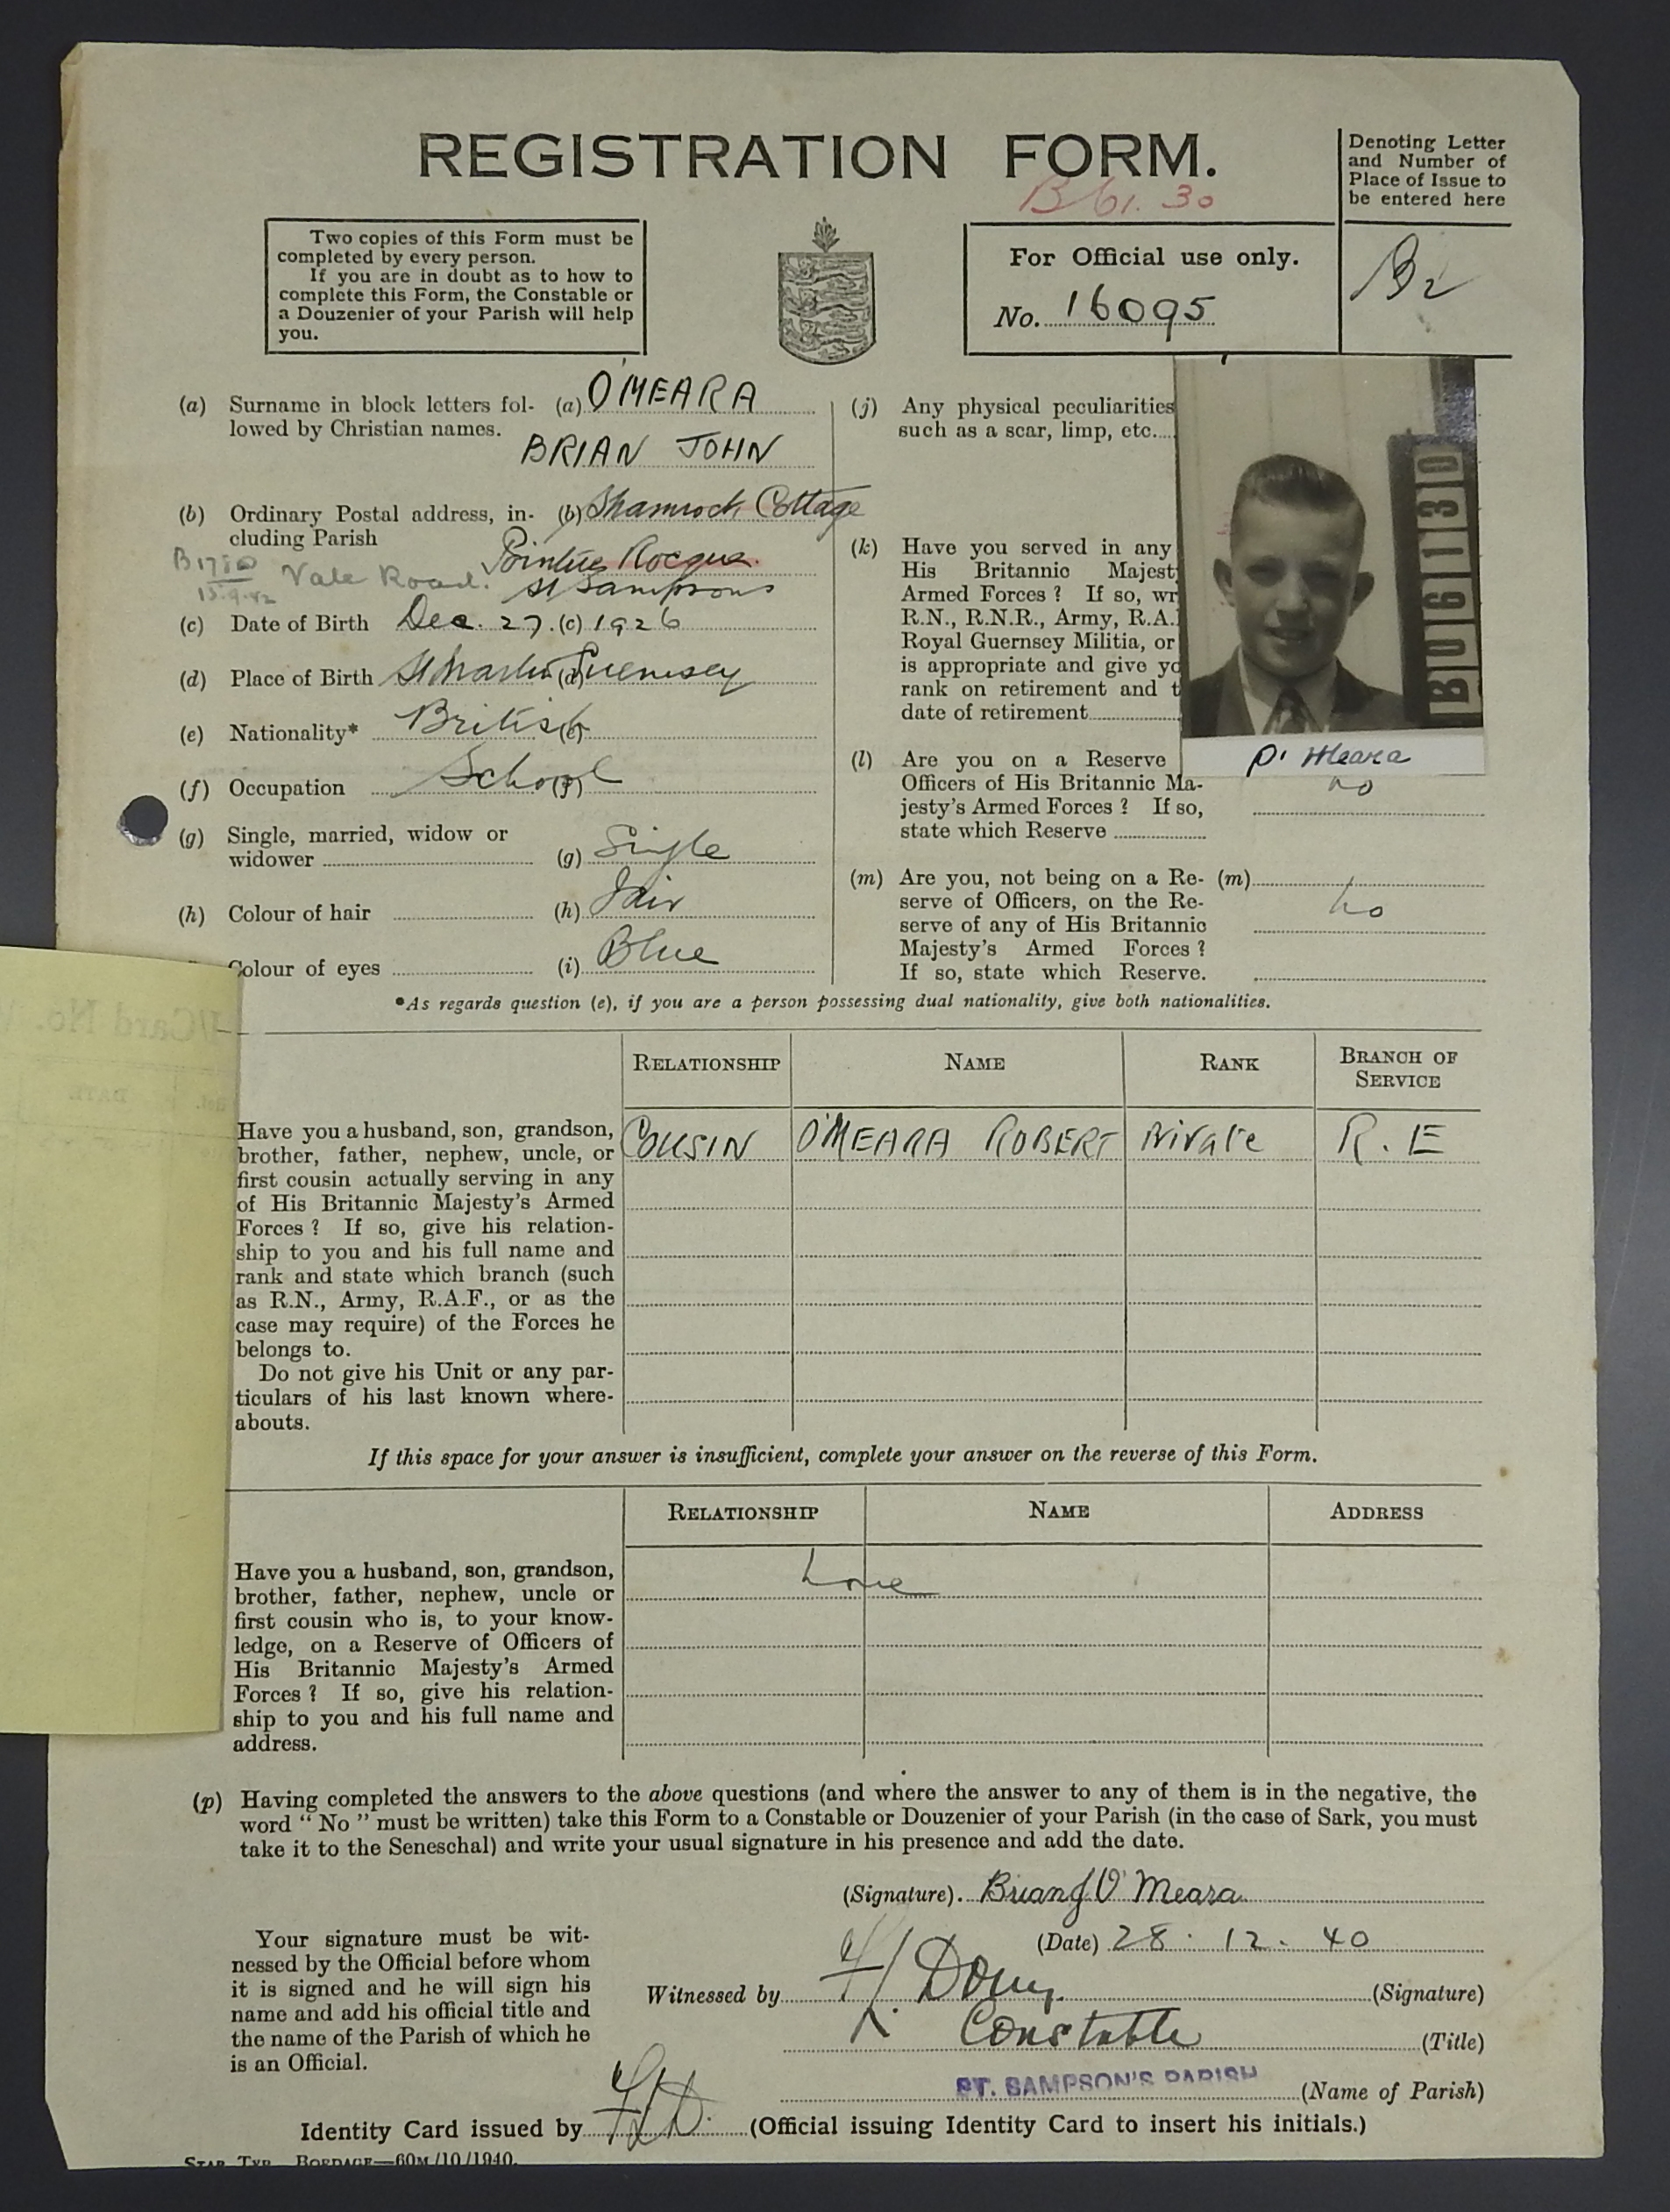 REGISTRATION FORM.
Denoting Letter
and Number of
Place of Issue to
be entered here
B 61. 30
Two copies of this Form must be
completed by every person.
If you are in doubt as to how to
complete this Form, the Constable or
a Douzenier of your Parish will help
you.
For Official use only.
No. 16095
B2
(a) Surname in block letters fol- (a) O'MEARA
lowed by Christian names.
BRIAN JOHN
(b) Ordinary Postal address, in- (b) Shamrock Cottage
cluding Parish
Pointue Rocque
B1780 Vale Road.
15.9.42
St Sampsons
(c) Date of Birth Dec. 27. (c) 1926
(d) Place of Birth St Martin (d) Guernsey
(e) Nationality* British (e)
(f) Occupation School (f)
(g) Single, married, widow or
widower (g) Single
(h) Colour of hair (h) Fair
Colour of eyes (i) Blue
(j) Any physical peculiarities
such as a scar, limp, etc.
(k) Have you served in any
His Britannic Majest
Armed Forces? If so, wr
R.N., R.N.R., Army, R.A.
Royal Guernsey Militia, or
is appropriate and give yo
rank on retirement and t
date of retirement
BU6130
O'Meara
(l) Are you on a Reserve
Officers of His Britannic Ma- no
jesty's Armed Forces? If so,
state which Reserve
(m) Are you, not being on a Re- (m)
serve of Officers, on the Re- no
serve of any of His Britannic
Majesty's Armed Forces?
If so, state which Reserve.
*As regards question (e), if you are a person possessing dual nationality, give both nationalities.
I/Card No.
DATE
RELATIONSHIP NAME RANK BRANCH OF SERVICE
COUSIN O'MEARA ROBERT Private R.E
Have you a husband, son, grandson,
brother, father, nephew, uncle, or
first cousin actually serving in any
of His Britannic Majesty's Armed
Forces? If so, give his relation-
ship to you and his full name and
rank and state which branch (such
as R.N., Army, R.A.F., or as the
case may require) of the Forces he
belongs to.
Do not give his Unit or any par-
ticulars of his last known where-
abouts.
If this space for your answer is insufficient, complete your answer on the reverse of this Form.
RELATIONSHIP NAME ADDRESS
none
Have you a husband, son, grandson,
brother, father, nephew, uncle or
first cousin who is, to your know-
ledge, on a Reserve of Officers of
His Britannic Majesty's Armed
Forces? If so, give his relation-
ship to you and his full name and
address.
(p) Having completed the answers to the above questions (and where the answer to any of them is in the negative, the
word "No" must be written) take this Form to a Constable or Douzenier of your Parish (in the case of Sark, you must
take it to the Seneschal) and write your usual signature in his presence and add the date.
(Signature). Brian J O'Meara
(Date) 28. 12. 40
Your signature must be wit-
nessed by the Official before whom
it is signed and he will sign his
name and add his official title and
the name of the Parish of which he
is an Official.
Witnessed by (Signature)
Constable (Title)
ST. SAMPSON'S PARISH (Name of Parish)
Identity Card issued by (Official issuing Identity Card to insert his initials.)
STAR TYP. BORDAGE—60M/10/1940.